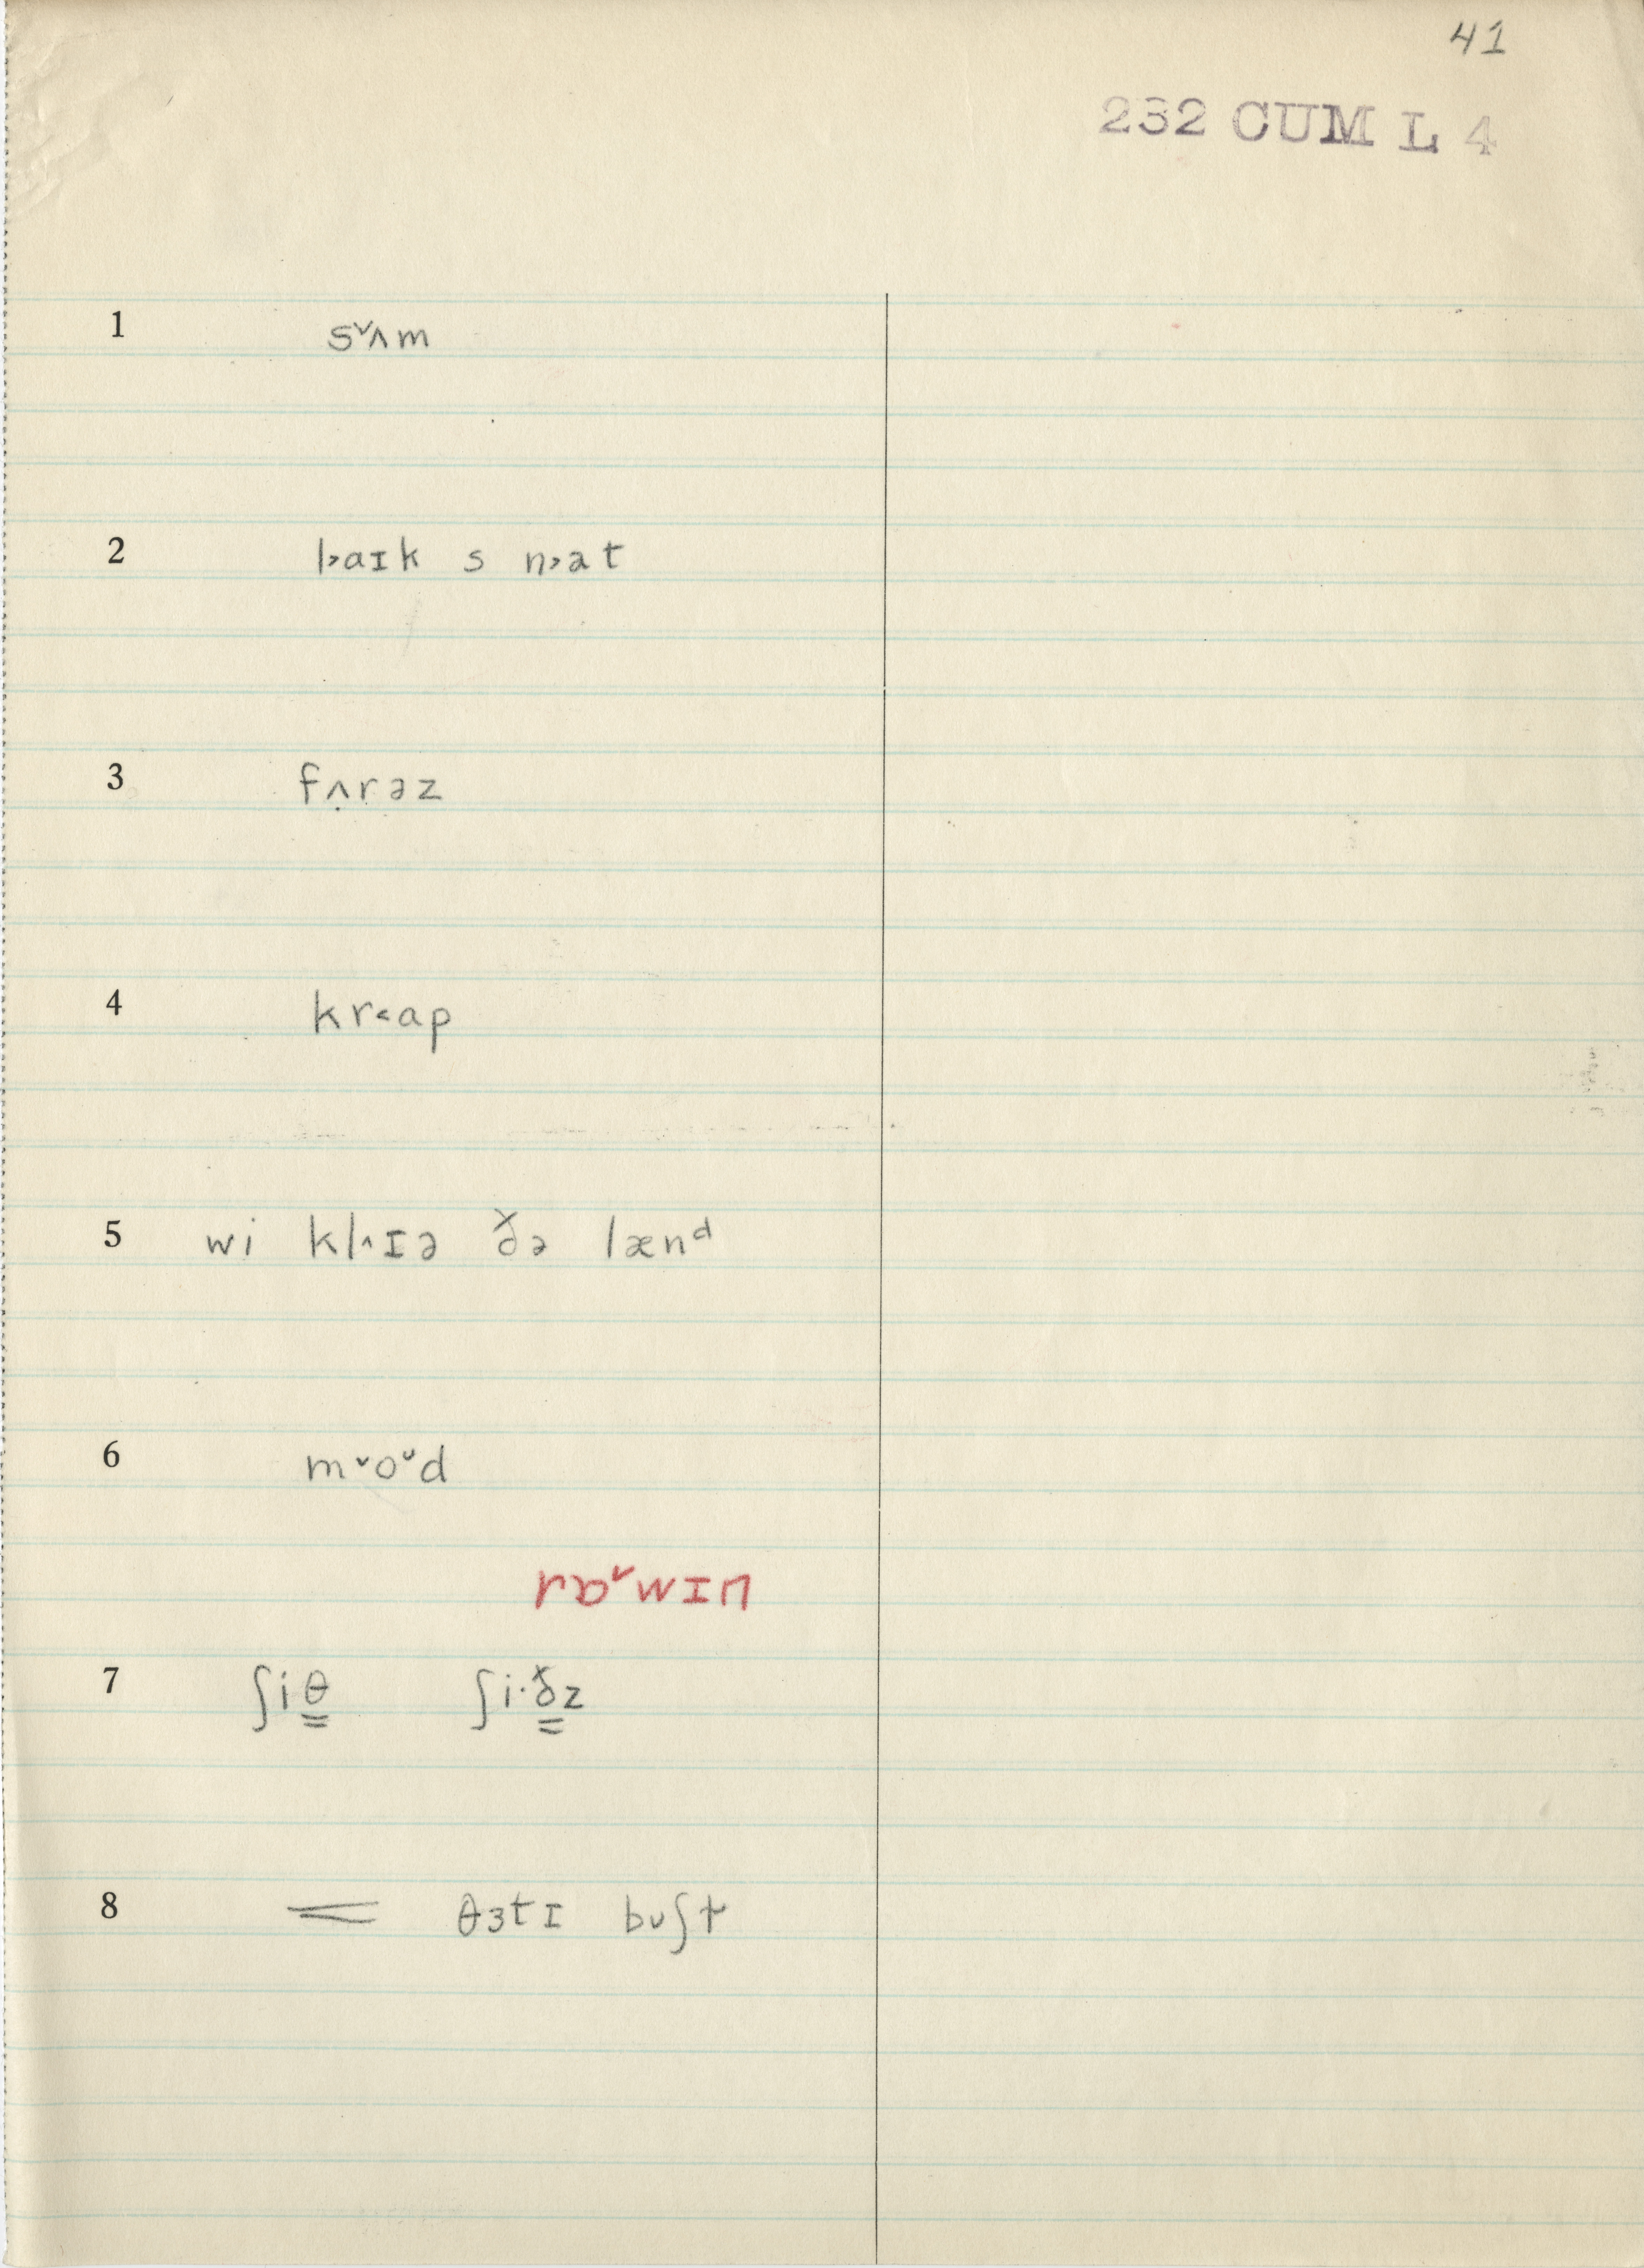 41
232 CUM L 4
1 s˅ʌm
2 l˃aɪk s n˃ət
3 fʌ̣rəz
4 kr˂ap
5 wi kl˄ɪə ðə lænᵈ
6 m˅o˅d
rɒ˅wɪn
7 ʃiθ̳ ʃi·ð̳z
8 = θɜtɪ bʊʃɫ